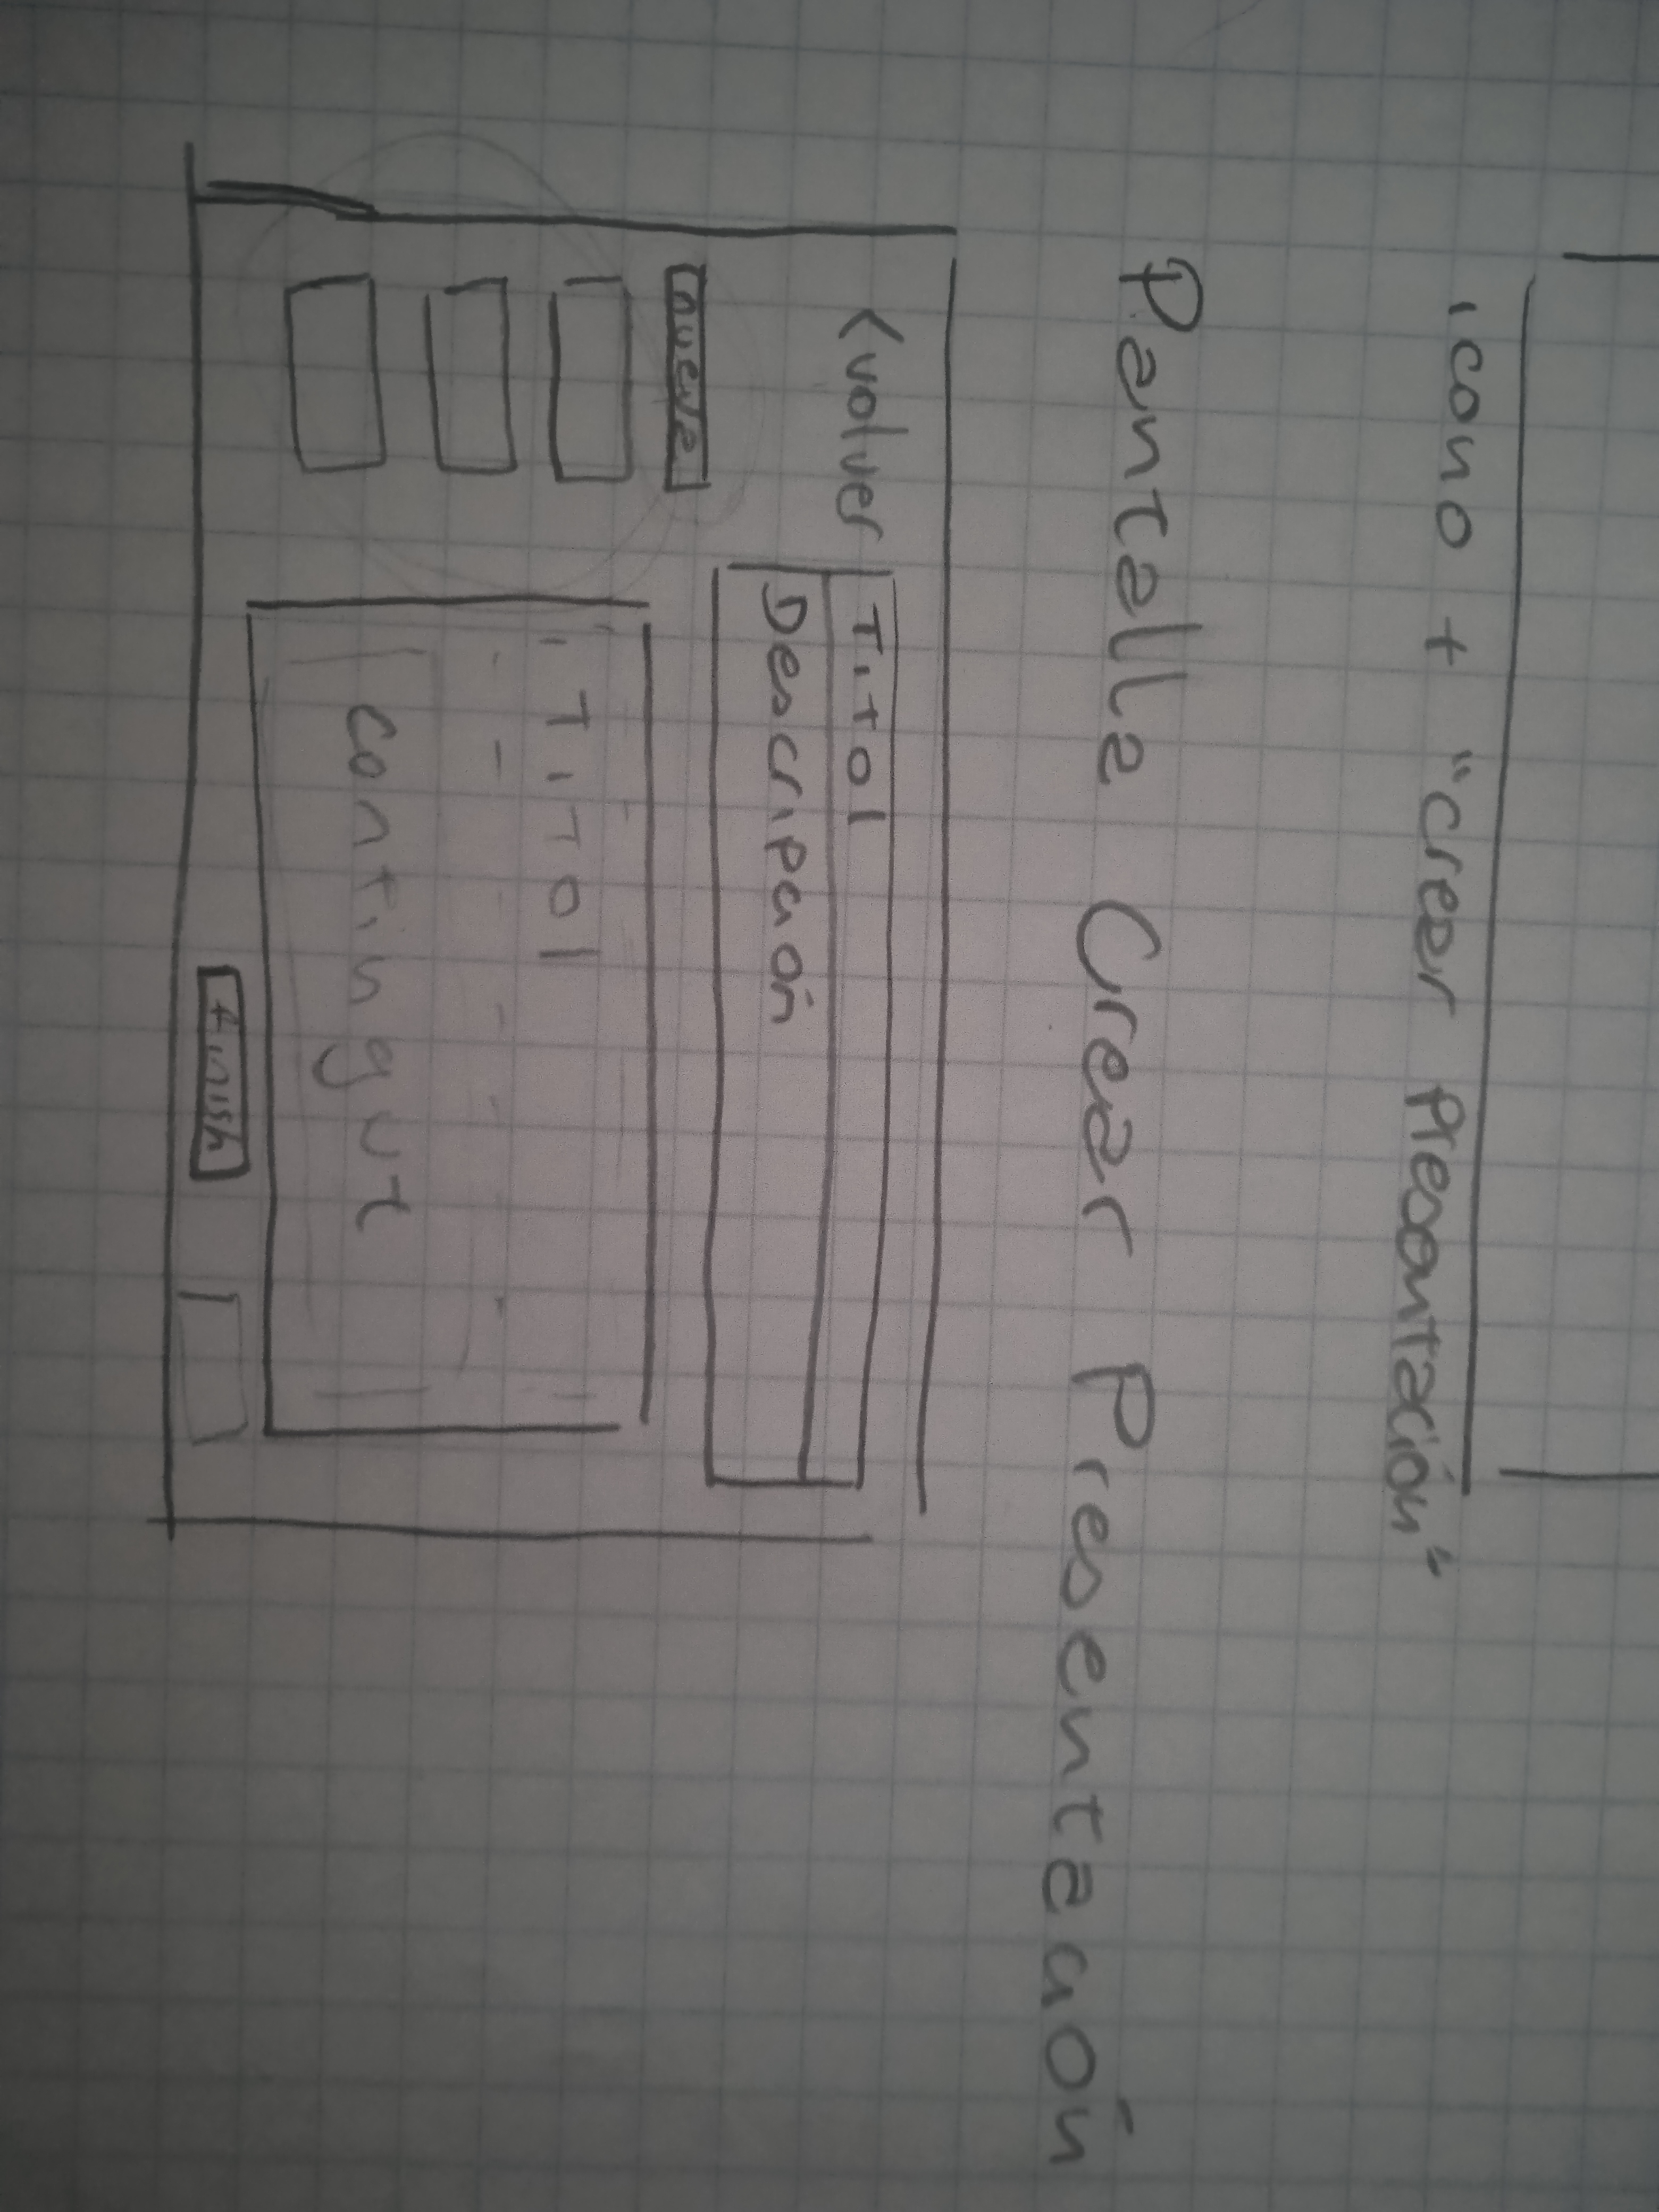 icono + "crear Presentación"
Pantalla Crear Presentación
<volver
Titol
Descripción
nueva
Titol
Contingut
finish